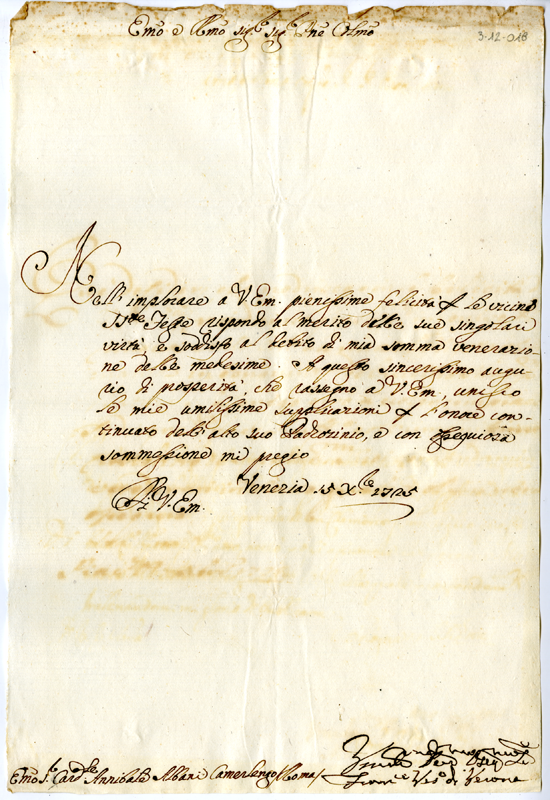 Emo e Rmo Sigr Sigr Pne Colmo
3-12-018
Nell' implorare a V Em. pienissime felicità p le vicine
Sste Feste rispondo al merito delle sue singolari
virtù, e sodisfo al debito di mia somma venerazio-
ne delle medesime. A questo sincerissimo augu-
rio di prosperità, che rassegno a V. Em, unisco
le mie umilissime supplicazioni p l'onore con-
tinuato dell' alto suo Padrocinio, e con ossequiosa
sommessione mi pregio
Di V. Em. Venezia 15 Xbre 1725
Emo Sr Cardle Annibale Albani Camerlengo Roma
Vesco di Verona